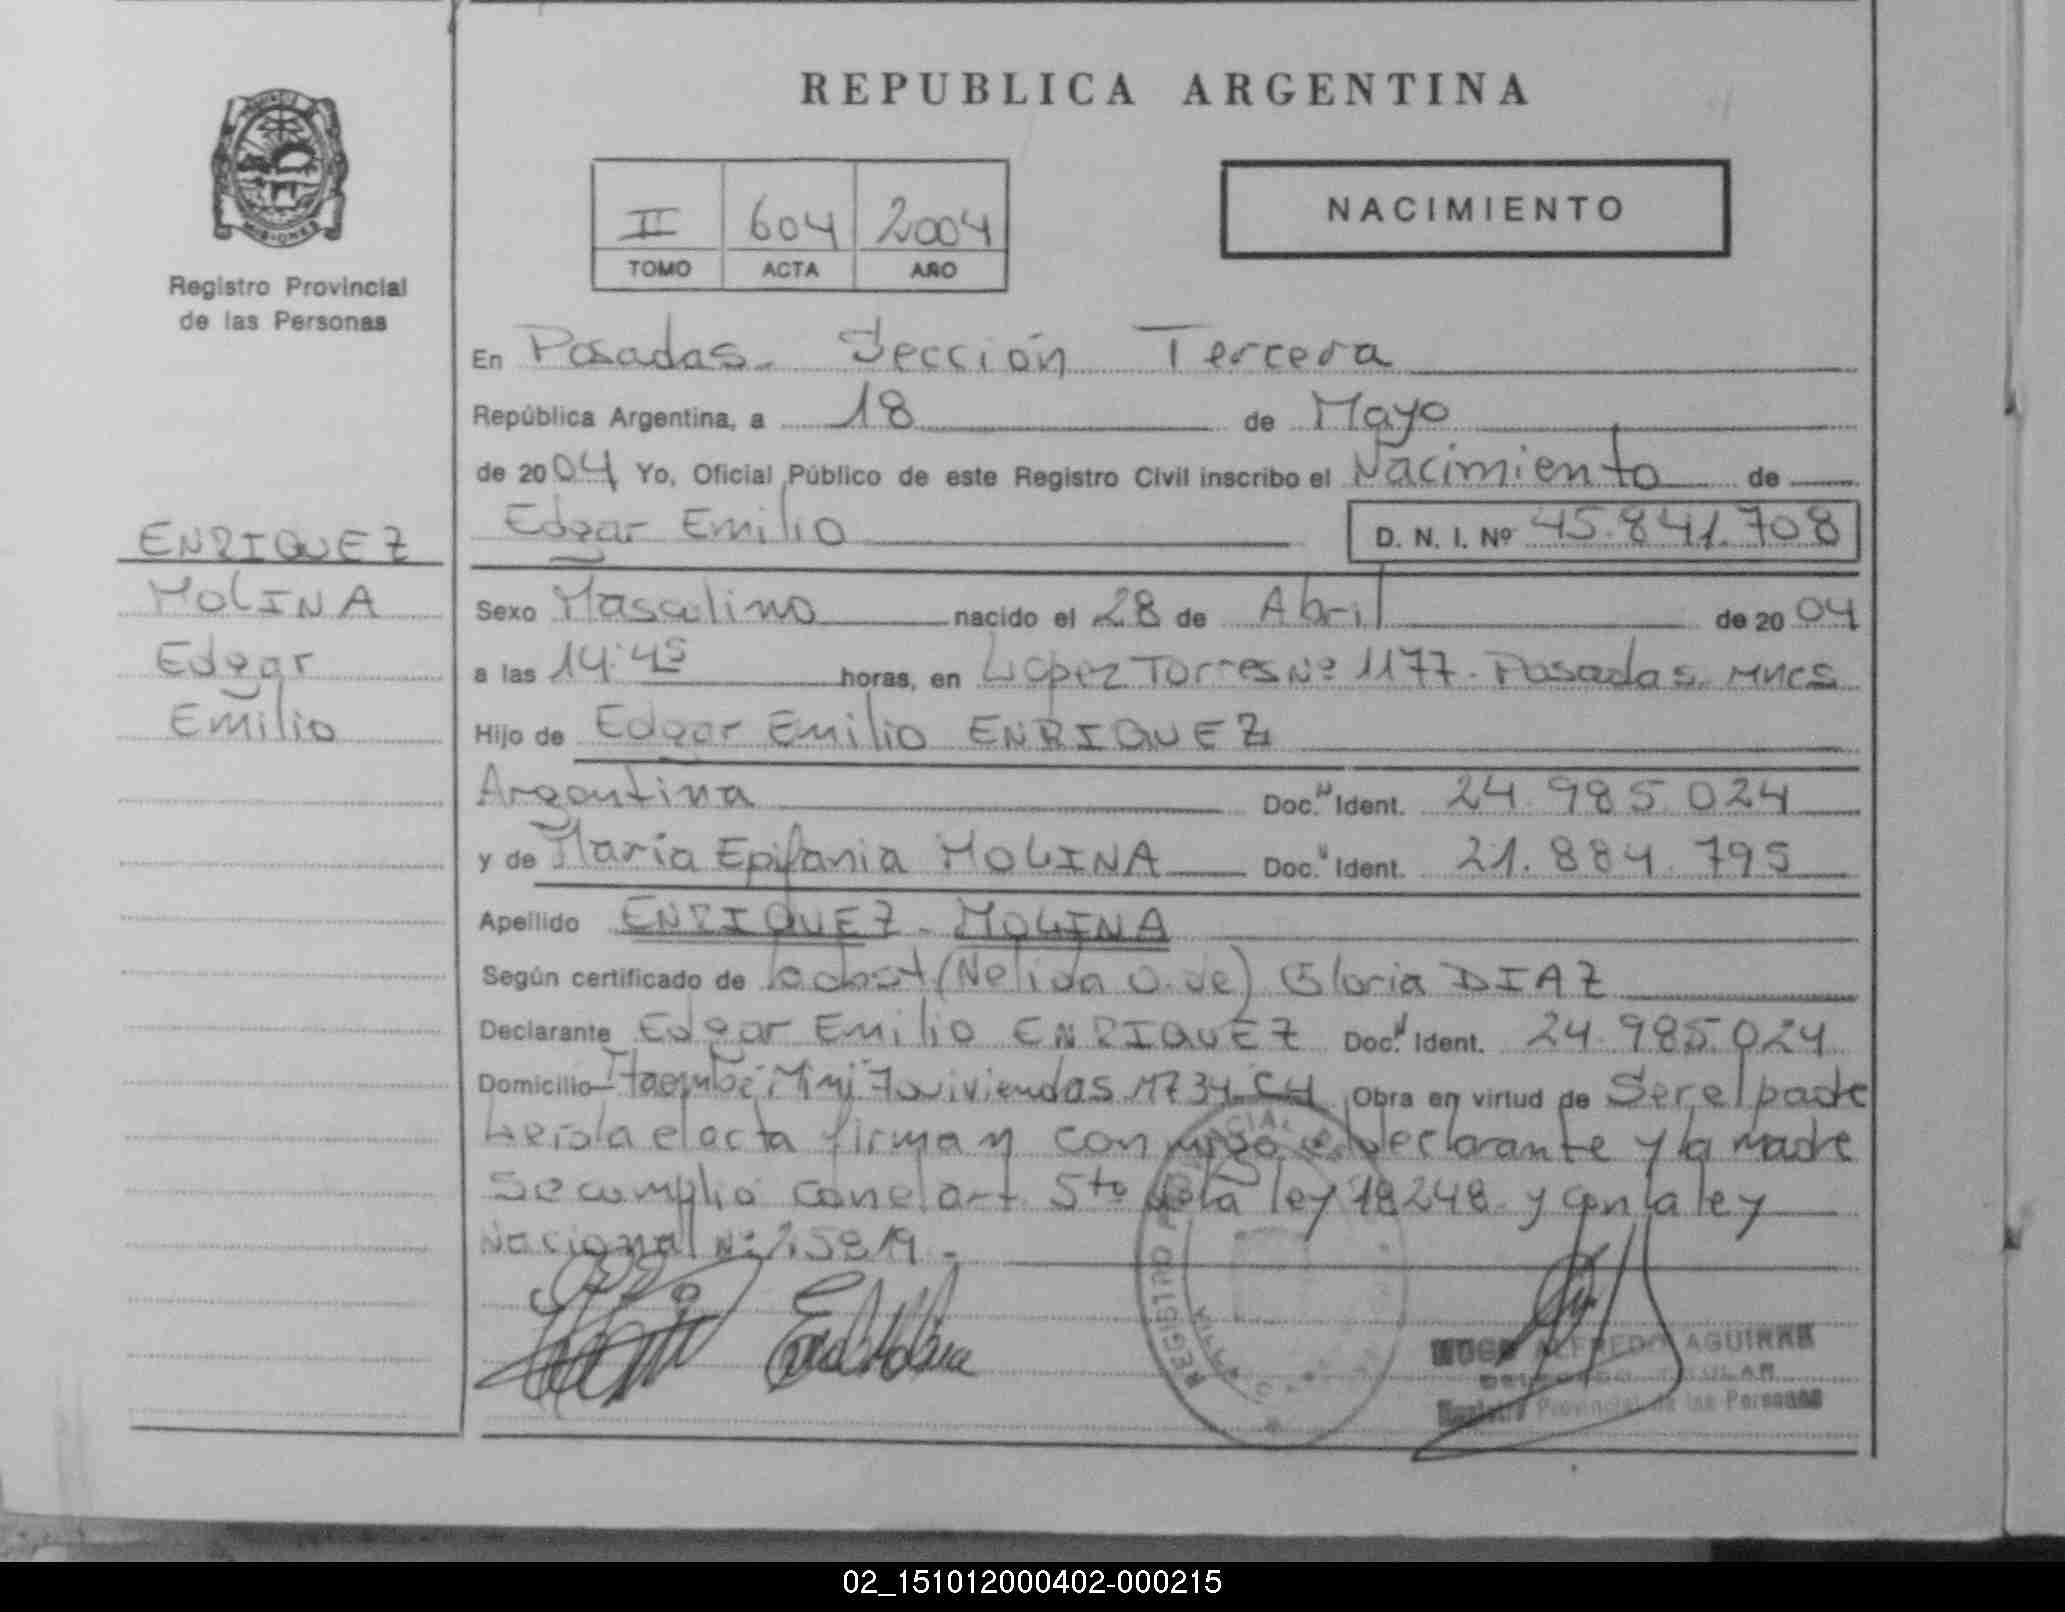 REPUBLICA ARGENTINA
MISIONES
Registro Provincial
de las Personas
II 604 2004
TOMO ACTA AÑO
NACIMIENTO
En Posadas. Sección Tercera
República Argentina, a 18 de Mayo
de 2004 Yo, Oficial Público de este Registro Civil inscribo el Nacimiento de
Edgar Emilio D. N. I. Nº 45.841.708
ENRIQUEZ
MOLINA
Edgar
Emilio
Sexo Masculino nacido el 28 de Abril de 2004
a las 14:45 horas, en López Torres Nº 1177. Posadas. Mnes
Hijo de Edgar Emilio ENRIQUEZ
Argentina Doc. Ident. 24.985.024
y de María Epifania MOLINA Doc. Ident. 21.884.795
Apellido ENRIQUEZ - MOLINA
Según certificado de obst (Nelida O. de) Gloria DIAZ
Declarante Edgar Emilio ENRIQUEZ Doc. Ident. 24.985.024
Domicilio Itaembé Miní viviendas Obra en virtud de Ser el padre
Leída el acta firman conmigo el declarante y la madre
Se cumplió con el art 5to de la ley 18248 y con la ley
Nacional Nº
REGISTRO
ALFREDO AGUIRRE
Registro Provincial de las Personas
02_151012000402-000215